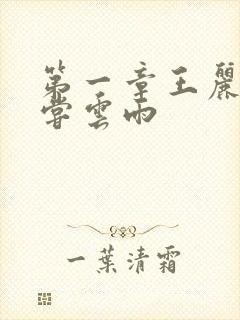 第一章王麗
嘗雲雨
一葉清霜